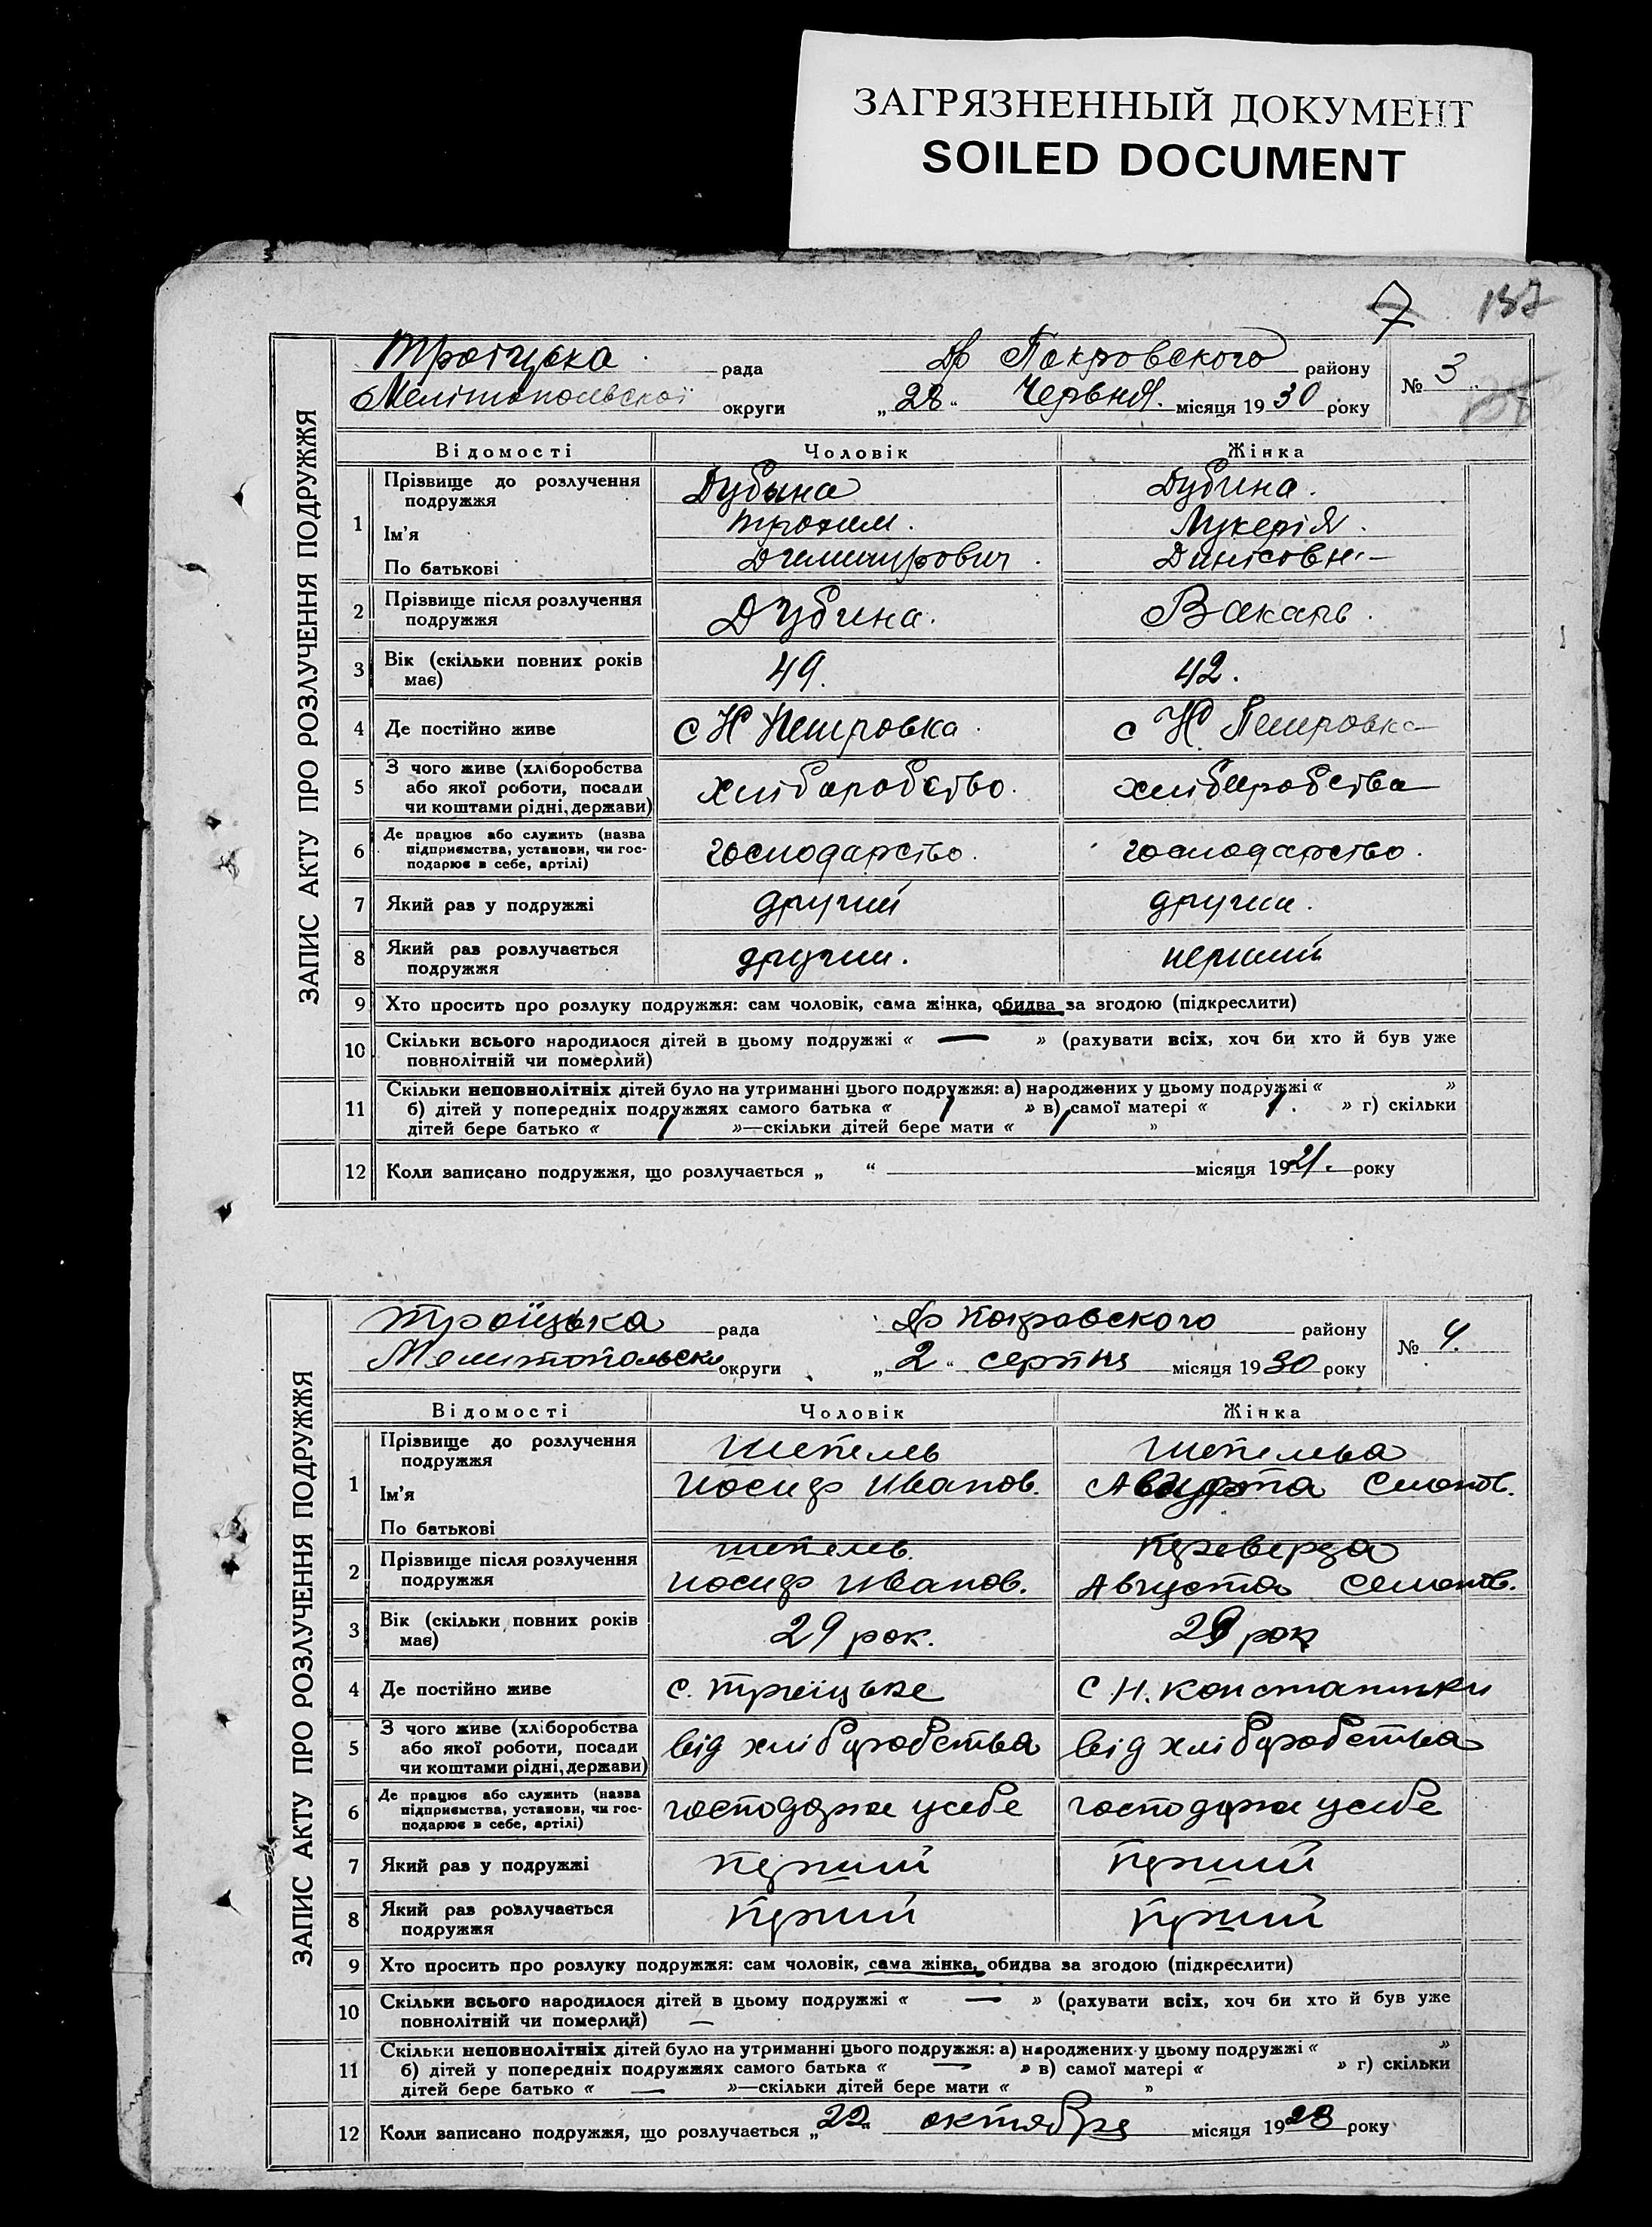 ЗАГРЯЗНЕННЫЙ ДОКУМЕНТ
SOILED DOCUMENT
7 137
ЗАПИС АКТУ ПРО РОЗЛУЧЕННЯ ПОДРУЖЖЯ
Троіцька рада Покровского району № 3
Мелітопольської округи „28“ Червня місяця 1930 року
Відомості Чоловік Жінка
1 Прізвище до розлучення подружжя Дубына Дубина
Ім'я Трохим Лукерія
По батькові
2 Прізвище після розлучення подружжя Дубина
3 Вік (скільки повних років має) 49. 42.
4 Де постійно живе с Н Петровка с Н. Петровка
5 З чого живе (хліборобства або якої роботи, посади чи коштами рідні, держави) хліборобство хліборобства
6 Де працює або служить (назва підприємства, установи, чи господарює в себе, артілі) господарство. господарство.
7 Який раз у подружжі другий другий
8 Який раз розлучається подружжя другий. перший
9 Хто просить про розлуку подружжя: сам чоловік, сама жінка, обидва за згодою (підкреслити)
10 Скільки всього народилося дітей в цьому подружжі « — » (рахувати всіх, хоч би хто й був уже
повнолітній чи померлий)
11 Скільки неповнолітніх дітей було на утриманні цього подружжя: а) народжених у цьому подружжі « »
б) дітей у попередніх подружжях самого батька « » в) самої матері « » г) скільки
дітей бере батько « »—скільки дітей бере мати « »
12 Коли записано подружжя, що розлучається „ “ місяця 1921. року
ЗАПИС АКТУ ПРО РОЗЛУЧЕННЯ ПОДРУЖЖЯ
Троїцька рада Покровского району № 4.
Мелитопольски округи „2“ серпня місяця 1930 року
Відомості Чоловік Жінка
1 Прізвище до розлучення подружжя Шепель Шепельва
Ім'я Иосиф Иванов. Августа
По батькові
2 Прізвище після розлучення подружжя Шепель. Переверза
Иосиф Иванов. Августа
3 Вік (скільки повних років має) 29 рок. рок
4 Де постійно живе с. Троіцьке с Н.
5 З чого живе (хліборобства або якої роботи, посади чи коштами рідні, держави) від хліборобства від хліборобства
6 Де працює або служить (назва підприємства, установи, чи господарює в себе, артілі) господарює у себе господарює у себе
7 Який раз у подружжі перший перший
8 Який раз розлучається подружжя перший перший
9 Хто просить про розлуку подружжя: сам чоловік, сама жінка, обидва за згодою (підкреслити)
10 Скільки всього народилося дітей в цьому подружжі « — » (рахувати всіх, хоч би хто й був уже
повнолітній чи померлий) —
11 Скільки неповнолітніх дітей було на утриманні цього подружжя: а) народжених у цьому подружжі « »
б) дітей у попередніх подружжях самого батька « — » в) самої матері « » г) скільки
дітей бере батько « — »—скільки дітей бере мати « »
12 Коли записано подружжя, що розлучається „22“ октября місяця 1928 року